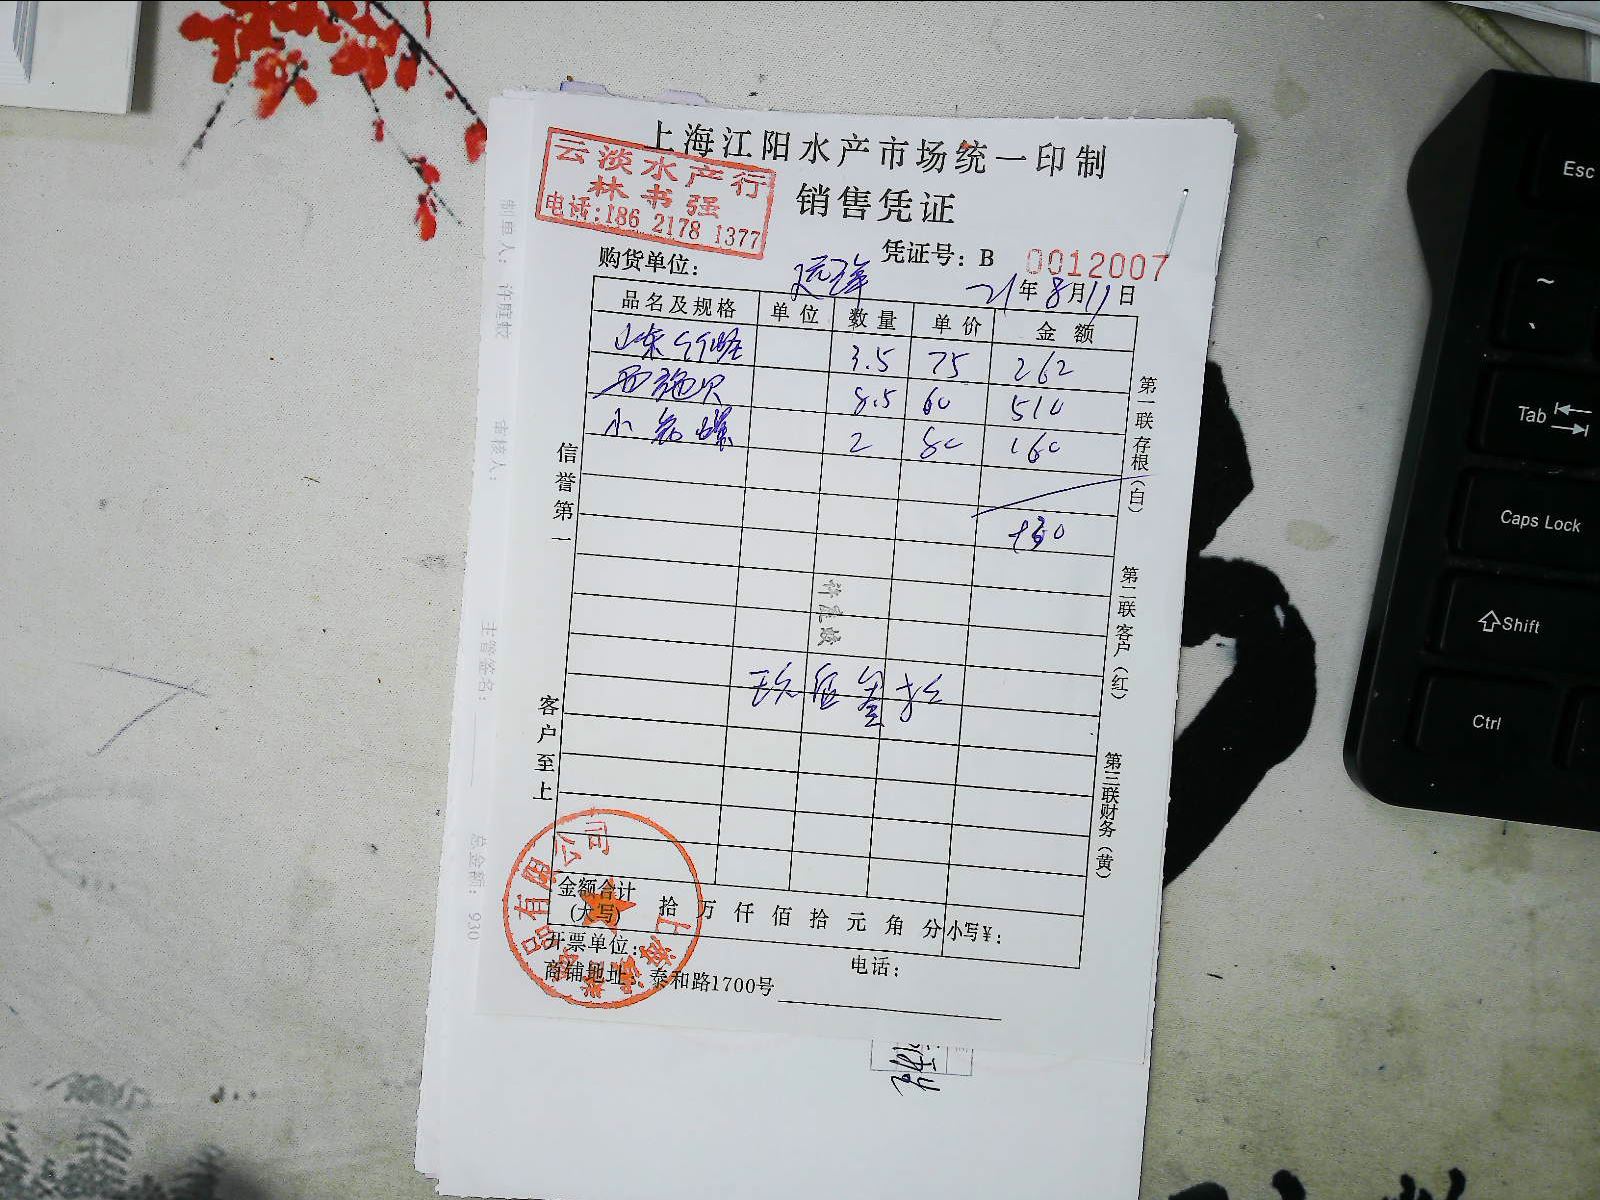 上海江阳水产市场统一印制
云淡水产行
林书强
电话:186 2178 1377
销售凭证
凭证号：B 0012007
购货单位：
21年8月11日
品名及规格 单位 数量 单价 金额
山东竹蛏 3.5 75 262
西施贝 8.5 60 510
小花螺 2 80 160
930
许庭姣
信誉第一
客户至上
第一联存根(白)
第二联客户(红)
第三联财务(黄)
金额合计
(大写) 拾 万 仟 佰 拾 元 角 分 小写¥：
开票单位：
电话：
商铺地址：泰和路1700号
品有限公司
上海
制单人：许庭姣
审核人：
主管签名：
总金额：930
Esc
~
Tab
Caps Lock
Shift
Ctrl